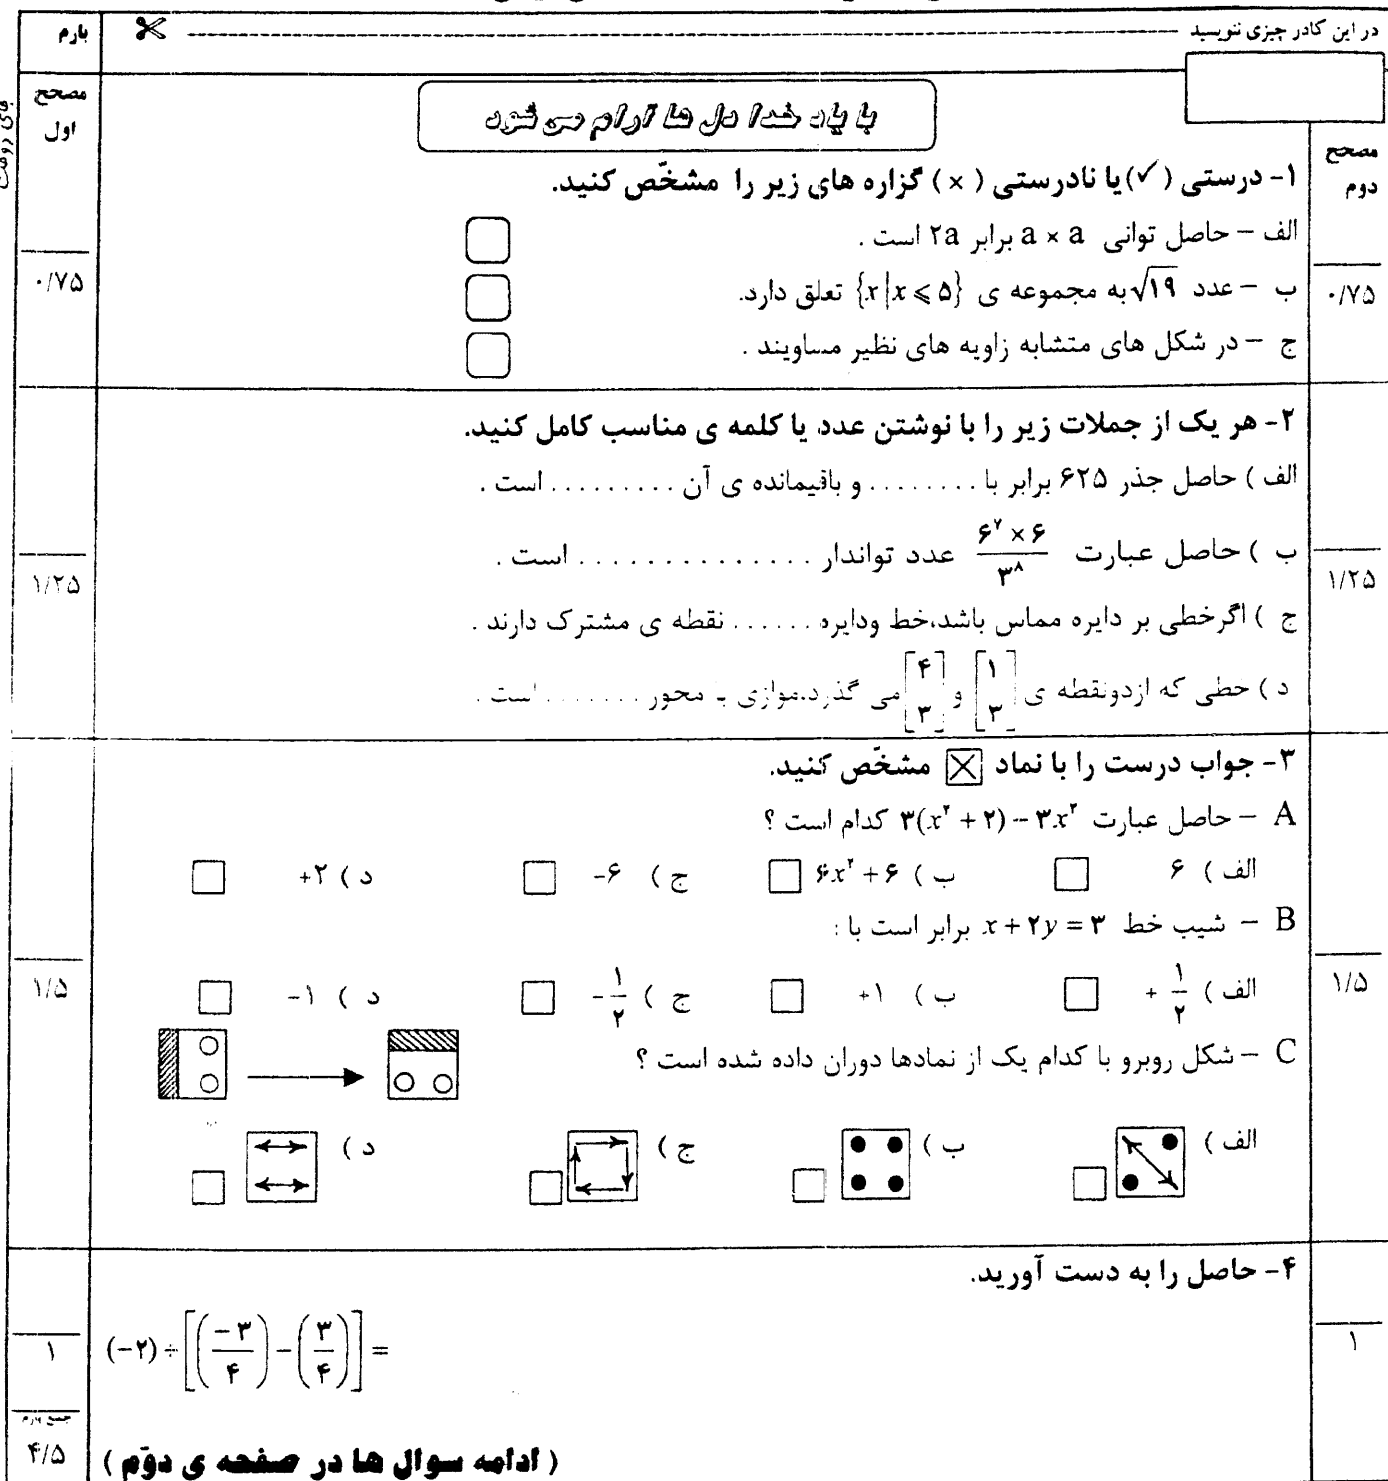 در این کادر چیزی ننویسید
بارم
مصحح اول
مصحح دوم
با یاد خدا دل ها آرام می شود
۱- درستی (✓) یا نادرستی (×) گزاره های زیر را مشخّص کنید.
الف – حاصل توانی a × a برابر ۲a است .
ب – عدد √۱۹ به مجموعه ی {x|x ⩽ ۵} تعلق دارد.
ج – در شکل های متشابه زاویه های نظیر مساویند .
۰/۷۵
۰/۷۵
۲- هر یک از جملات زیر را با نوشتن عدد یا کلمه ی مناسب کامل کنید.
الف ) حاصل جذر ۶۲۵ برابر با ........ و باقیمانده ی آن ......... است .
ب ) حاصل عبارت (۶^۷ × ۶)/(۳^۸) عدد تواندار ............... است .
ج ) اگرخطی بر دایره مماس باشد،خط ودایره ...... نقطه ی مشترک دارند .
د ) خطی که ازدونقطه ی [۱ ۳] و [۴ ۳] می گذرد،موازی با محور ........ است .
۱/۲۵
۱/۲۵
۳- جواب درست را با نماد ☒ مشخّص کنید.
A – حاصل عبارت ۳(x^۲ + ۲) – ۳x^۲ کدام است ؟
الف ) ۶ ب ) ۶x^۲ + ۶ ج ) -۶ د ) +۲
B – شیب خط x + ۲y = ۳ برابر است با :
الف ) +۱/۲ ب ) +۱ ج ) -۱/۲ د ) -۱
C – شکل روبرو با کدام یک از نمادها دوران داده شده است ؟
الف ) ب ) ج ) د )
۱/۵
۱/۵
۴- حاصل را به دست آورید.
(−۲) ÷ [(−۳/۴) − (۳/۴)] =
۱
۱
جمع بارم
۴/۵
( ادامه سوال ها در صفحه ی دوّم )